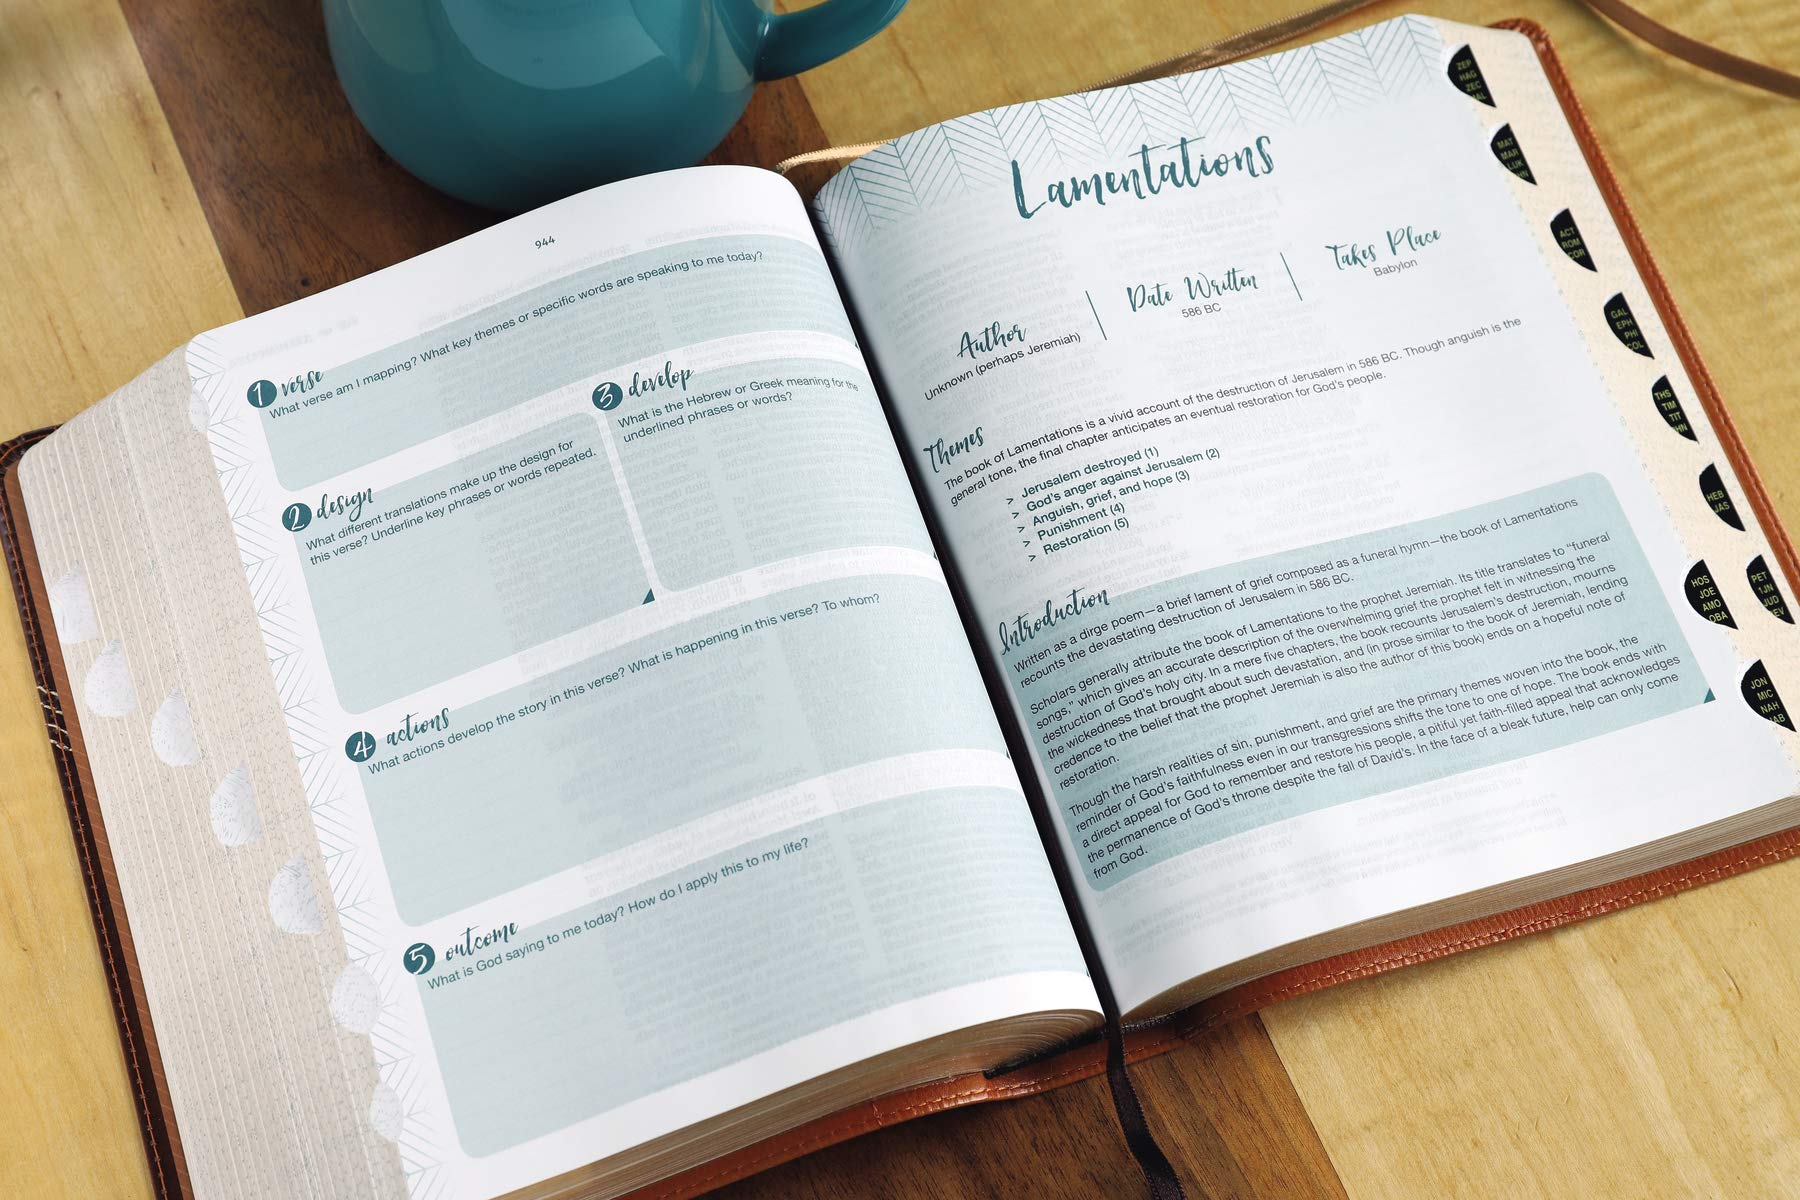 944
1 verse
What verse am I mapping? What key themes or specific words are speaking to me today?
2 design
What different translations make up the design for
this verse? Underline key phrases or words repeated.
3 develop
What is the Hebrew or Greek meaning for the
underlined phrases or words?
4 actions
What actions develop the story in this verse? What is happening in this verse? To whom?
5 outcome
What is God saying to me today? How do I apply this to my life?
Lamentations
Author
Unknown (perhaps Jeremiah)
Date Written
586 BC
Takes Place
Babylon
Themes
The book of Lamentations is a vivid account of the destruction of Jerusalem in 586 BC. Though anguish is the
general tone, the final chapter anticipates an eventual restoration for God's people.
> Jerusalem destroyed (1)
> God's anger against Jerusalem (2)
> Anguish, grief, and hope (3)
> Punishment (4)
> Restoration (5)
Introduction
Written as a dirge poem—a brief lament of grief composed as a funeral hymn—the book of Lamentations
recounts the devastating destruction of Jerusalem in 586 BC.
Scholars generally attribute the book of Lamentations to the prophet Jeremiah. Its title translates to "funeral
songs," which gives an accurate description of the overwhelming grief the prophet felt in witnessing the
destruction of God's holy city. In a mere five chapters, the book recounts Jerusalem's destruction, mourns
the wickedness that brought about such devastation, and (in prose similar to the book of Jeremiah, lending
credence to the belief that the prophet Jeremiah is also the author of this book) ends on a hopeful note of
restoration.
Though the harsh realities of sin, punishment, and grief are the primary themes woven into the book, the
reminder of God's faithfulness even in our transgressions shifts the tone to one of hope. The book ends with
a direct appeal for God to remember and restore his people, a pitiful yet faith-filled appeal that acknowledges
the permanence of God's throne despite the fall of David's. In the face of a bleak future, help can only come
from God.
ZEP
HAG
ZEC
MAT
MAR
ACT
ROM
COR
GAL
EPH
PHI
COL
THS
TIM
TIT
HEB
JAS
HOS
JOE
AMO
OBA
PET
1JN
JUD
JON
MIC
NAH